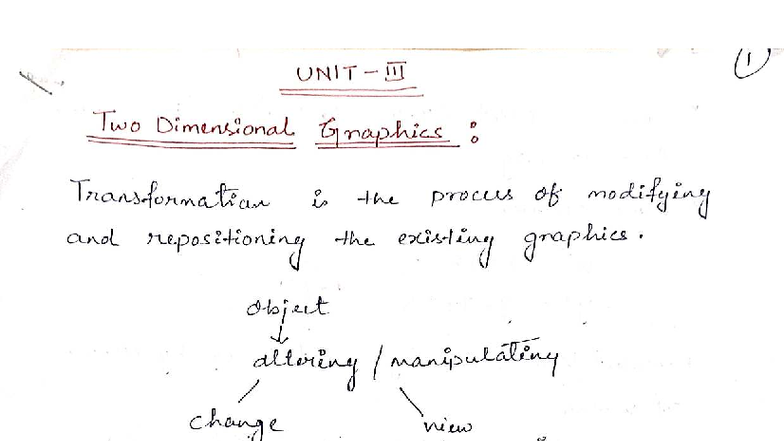 1
UNIT - III
Two Dimensional Graphics :
Transformation is the process of modifying
and repositioning the existing graphics.
object
altering / manipulating
change view